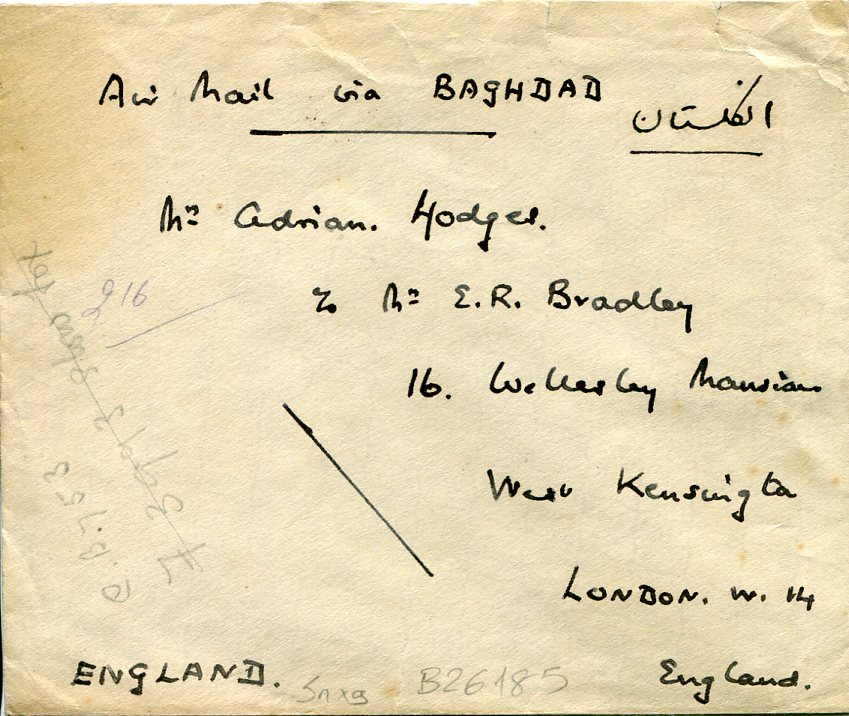 Air Mail via BAGHDAD
انگلستان
Mr Adrian. Hodges.
c/o Mr E.R. Bradley
16. Wellesley Mansions
West Kensington
LONDON. W. 14
England.
ENGLAND.
916
B26185